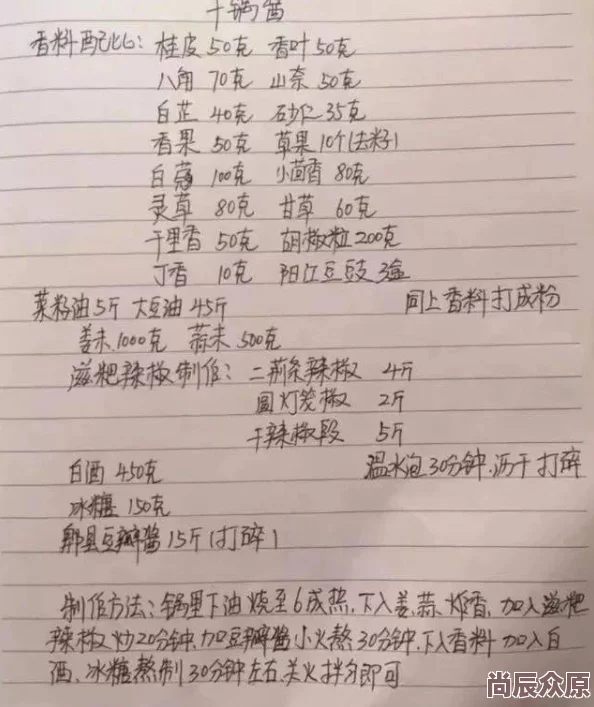 干锅酱
香料配比: 桂皮 50克 香叶 50克
八角 70克 山奈 50克
白芷 40克 砂仁 35克
香果 50克 草果 10个(去籽)
白蔻 100克 小茴香 80克
灵草 80克 甘草 60克
千里香 50克 胡椒粒 200克
丁香 10克 阳江豆豉 3盒
菜籽油5斤 大豆油 45斤 同上香料打成粉
姜末.1000克 蒜末 500克
滋粑辣椒制作: 二荆条辣椒 4斤
圆灯笼椒 2斤
干辣椒段 5斤
白酒 450克 温水泡30分钟.沥干 打碎
冰糖 150克
郫县豆瓣酱 15斤(打碎)
制作方法: 锅里下油烧至6成热.下入姜.蒜.炸香.加入滋粑
辣椒炒20分钟.加豆瓣酱小火熬30分钟.下入香料 加入白
酒.冰糖熬制30分钟左右.关火拌匀即可
尚辰众原